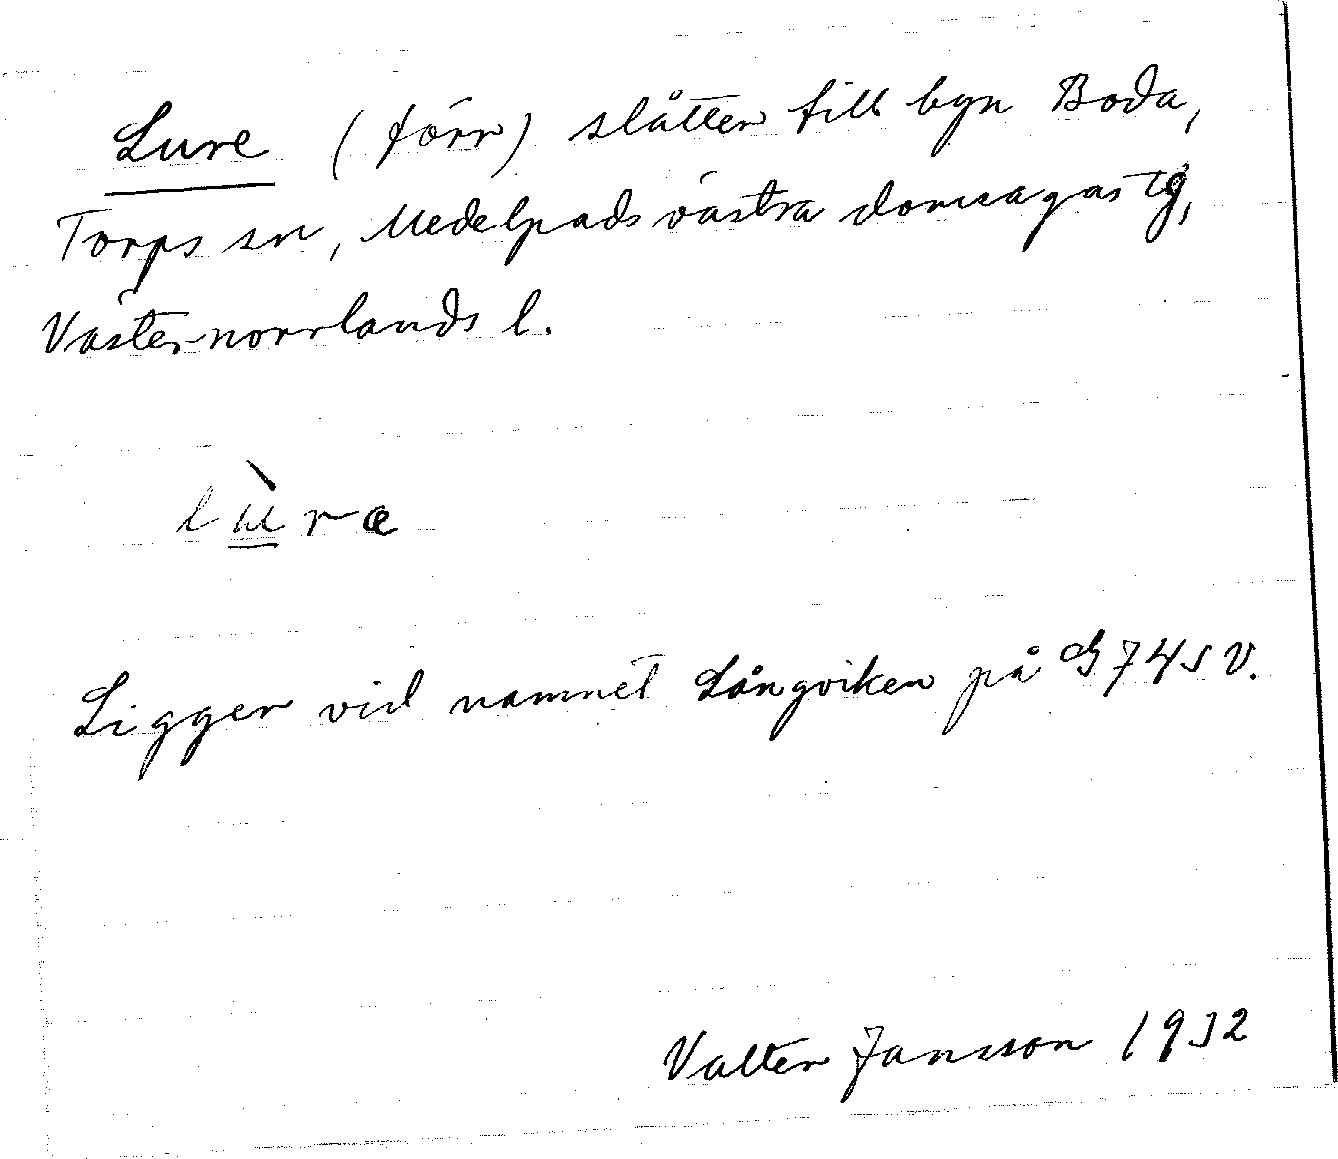 Lure (förr) slåtter till byn Boda,
Torps sn, Medelpads västra domsagas tg,
Västernorrlands l.
lùra
Ligger vid namnet Långviken på G 74 SV.
Valter Jansson 1932